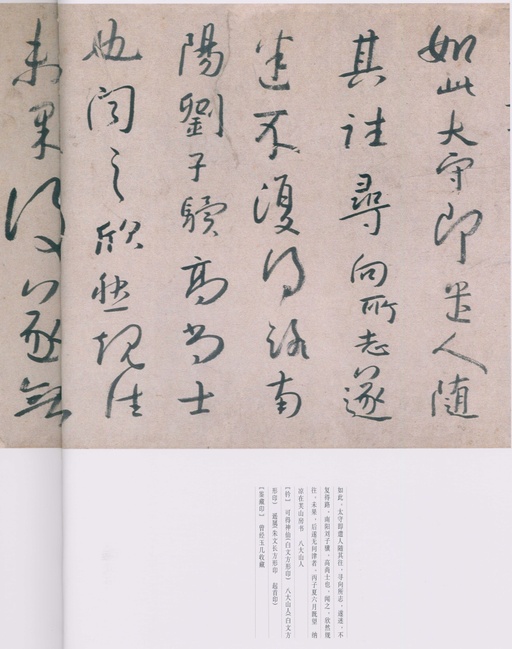 如此大守即遣人随
其往尋向所志遂
迷不復得路南
陽劉子驥高尚士
也聞之欣然規往
未果後遂無
如此，太守即遣人随其往，寻向所志，遂迷，不
复得路，南阳刘子骥，高尚士也，闻之，欣然规
往，未果，后遂无问津者，丙子夏六月既望 纳
凉在芙山房书 八大山人
【钤】 可得神仙（白文方形印） 八大山人（白文方
形印） 遥属（朱文长方形印 起首印）
【鉴藏印】 曾经玉几收藏